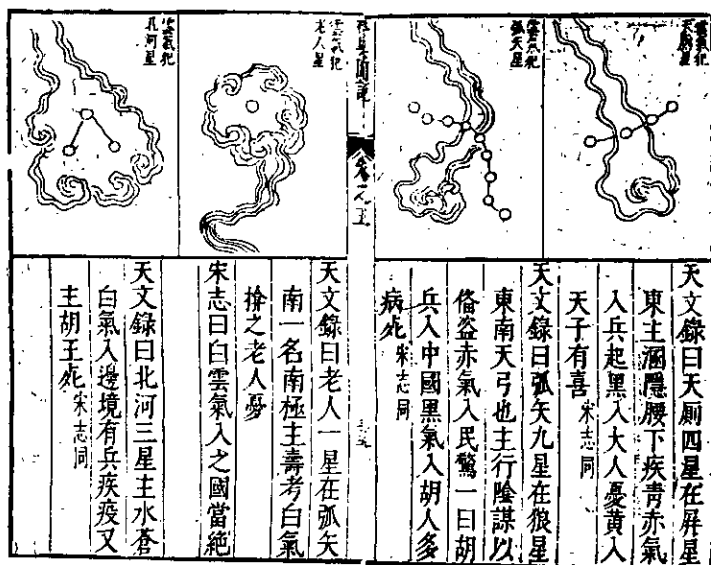 雲氣犯
天廁星
雲氣犯
弧矢星
天文錄曰天廁四星在屏星
東主溷隱腰下疾青赤氣
入兵起黑入大人憂黃入
天子有喜 宋志同
天文錄曰弧矢九星在狼星
東南天弓也主行陰謀以
俻盜赤氣入民驚一曰胡
兵入中國黑氣入胡人多
病死 宋志同
卷之五
雲氣犯
老人星
雲氣犯
北河星
天文錄曰老人一星在弧矢
南一名南極主壽考白氣
揜之老人憂
宋志曰白雲氣入之國當絶
天文錄曰北河三星主水蒼
白氣入邊境有兵疾疫又
主胡王死 宋志同